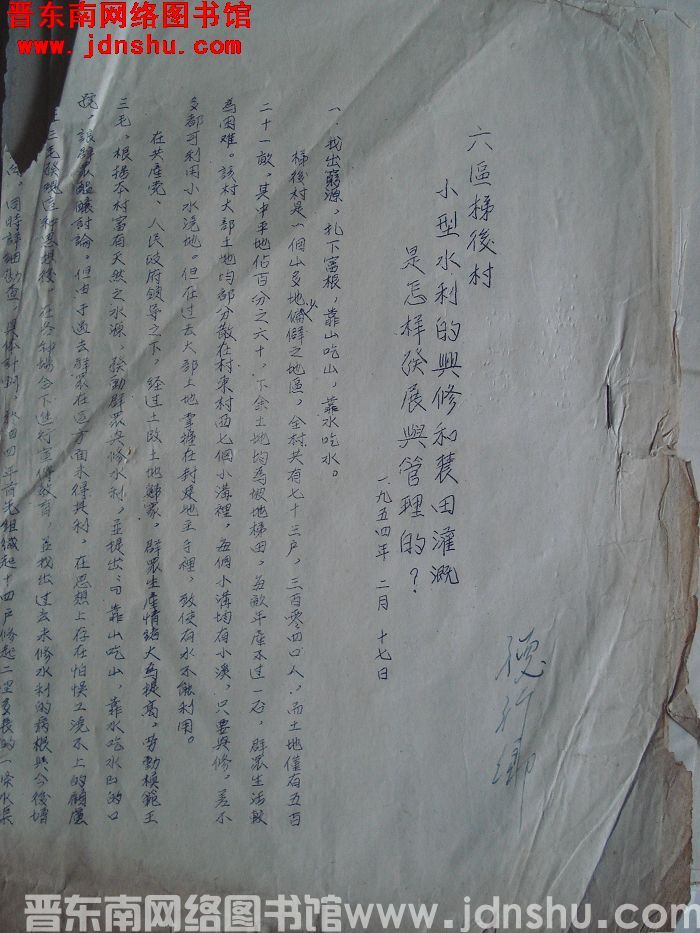 晋东南网络图书馆
www.jdnshu.com
六區梯後村
小型水利的興修和農田灌溉
是怎样發展與管理的？
一九五四年 二月 十七日
一、找出窮源，扎下富根，靠山吃山，靠水吃水。
梯後村是一個山多地少偏僻之地區，全村共有七十三户，三百零四口人，而土地僅有五百
二十一畝，其中平地佔百分之六十，下余土地均為坡地梯田，每畝年産不过一石，群眾生活較
為困难。該村大部土地均部分散在村東村西七個小溝裡，每個小溝均有小溪，只要興修，差不
多都可利用小水澆地。但在过去大部土地掌握在封建地主手裡，致使有水不能利用。
在共産党 人民政府領导之下，經过土改土地歸家，群眾生産情緒大為提高，劳動模範王
三毛，根据本村富有天然之水源，發動群眾興修水利，並提出「靠山吃山，靠水吃水」的口
號，讓群眾醖釀討論。但由于过去群眾在這方面未得其利，在思想上存在怕悮工澆不上的顧慮
王三毛發現這种思想後，在各种場合下進行宣傳教育，並找出过去未修水利的病根與今後增
同時詳細勘查，具体計划，於四四年首先組織起十四户修起二里多長的一條水渠
德行鄉
晋东南网络图书馆 www.jdnshu.com